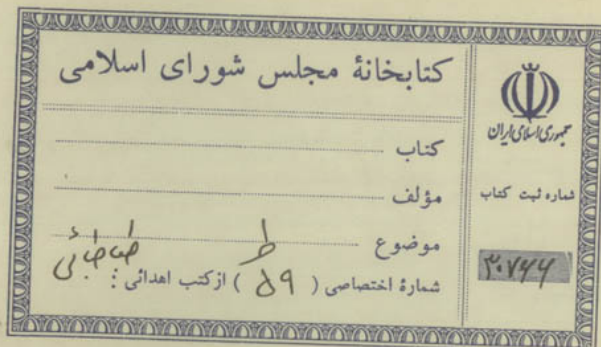 کتابخانهٔ مجلس شورای اسلامی
کتاب
مؤلف
موضوع
شمارهٔ اختصاصی ( ۵۹ ) از کتب اهدائی : طباطبائی
ط
جمهوری اسلامی ایران
شماره ثبت کتاب
۳۰۷۶۶